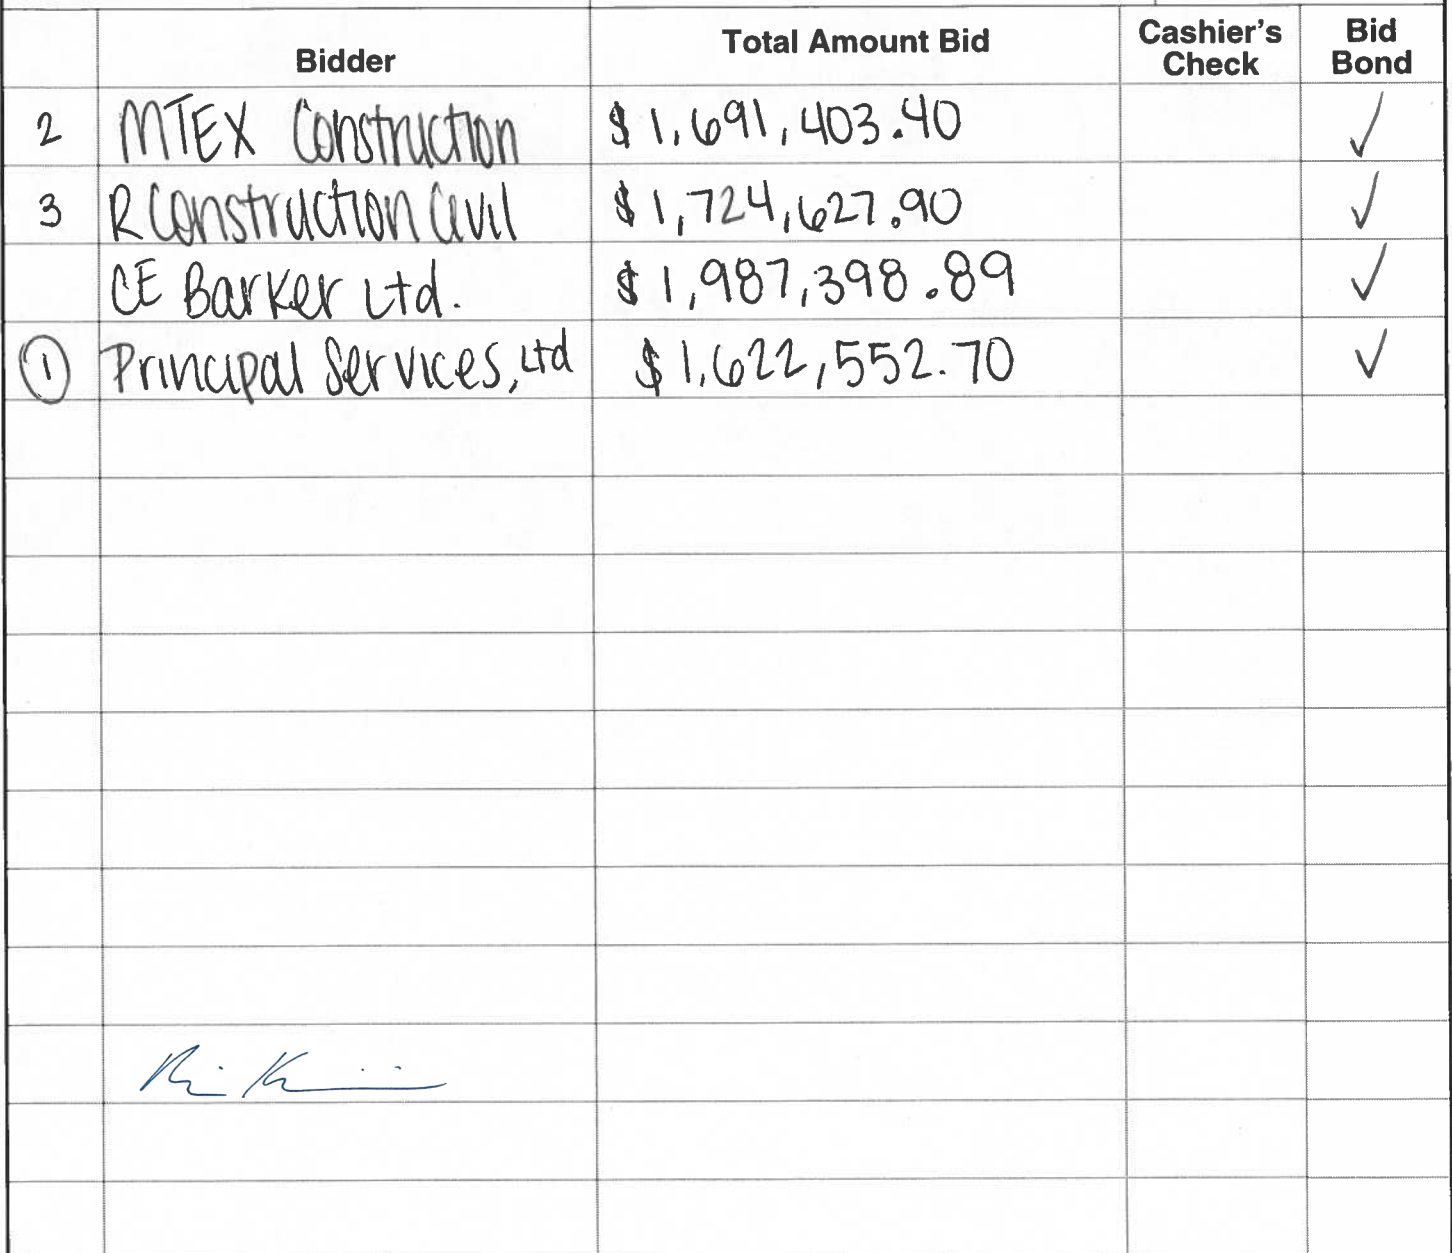 Bidder Total Amount Bid Cashier's Check Bid Bond
2 MTEX Construction $1,691,403.40 ✓
3 R Construction Civil $1,724,627.90 ✓
CE Barker Ltd. $1,987,398.89 ✓
1 Principal Services, Ltd $1,622,552.70 ✓